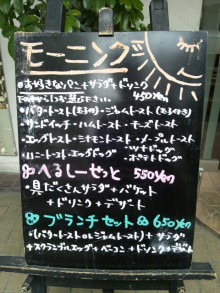 モーニング
お好きなパン+サラダ+ドリンク
下の中から1つお選び下さい。 450Yen
・バタートースト(あつ切り)・ジャムトースト(あつ切り)
・サンドイッチ・ハムトースト・チーズトースト
・エッグトースト・シナモントースト・メープルトースト
・ハニートースト・エッグドッグ・ツナドッグ
・ポテトドッグ
へるしーせっと 550Yen
・具だくさんサラダ+バケット
+ドリンク+デザート
ブランチセット 650Yen
(バタートーストorジャムトースト)+サラダ
+スクランブルエッグ+ベーコン+ドリンク+デザート